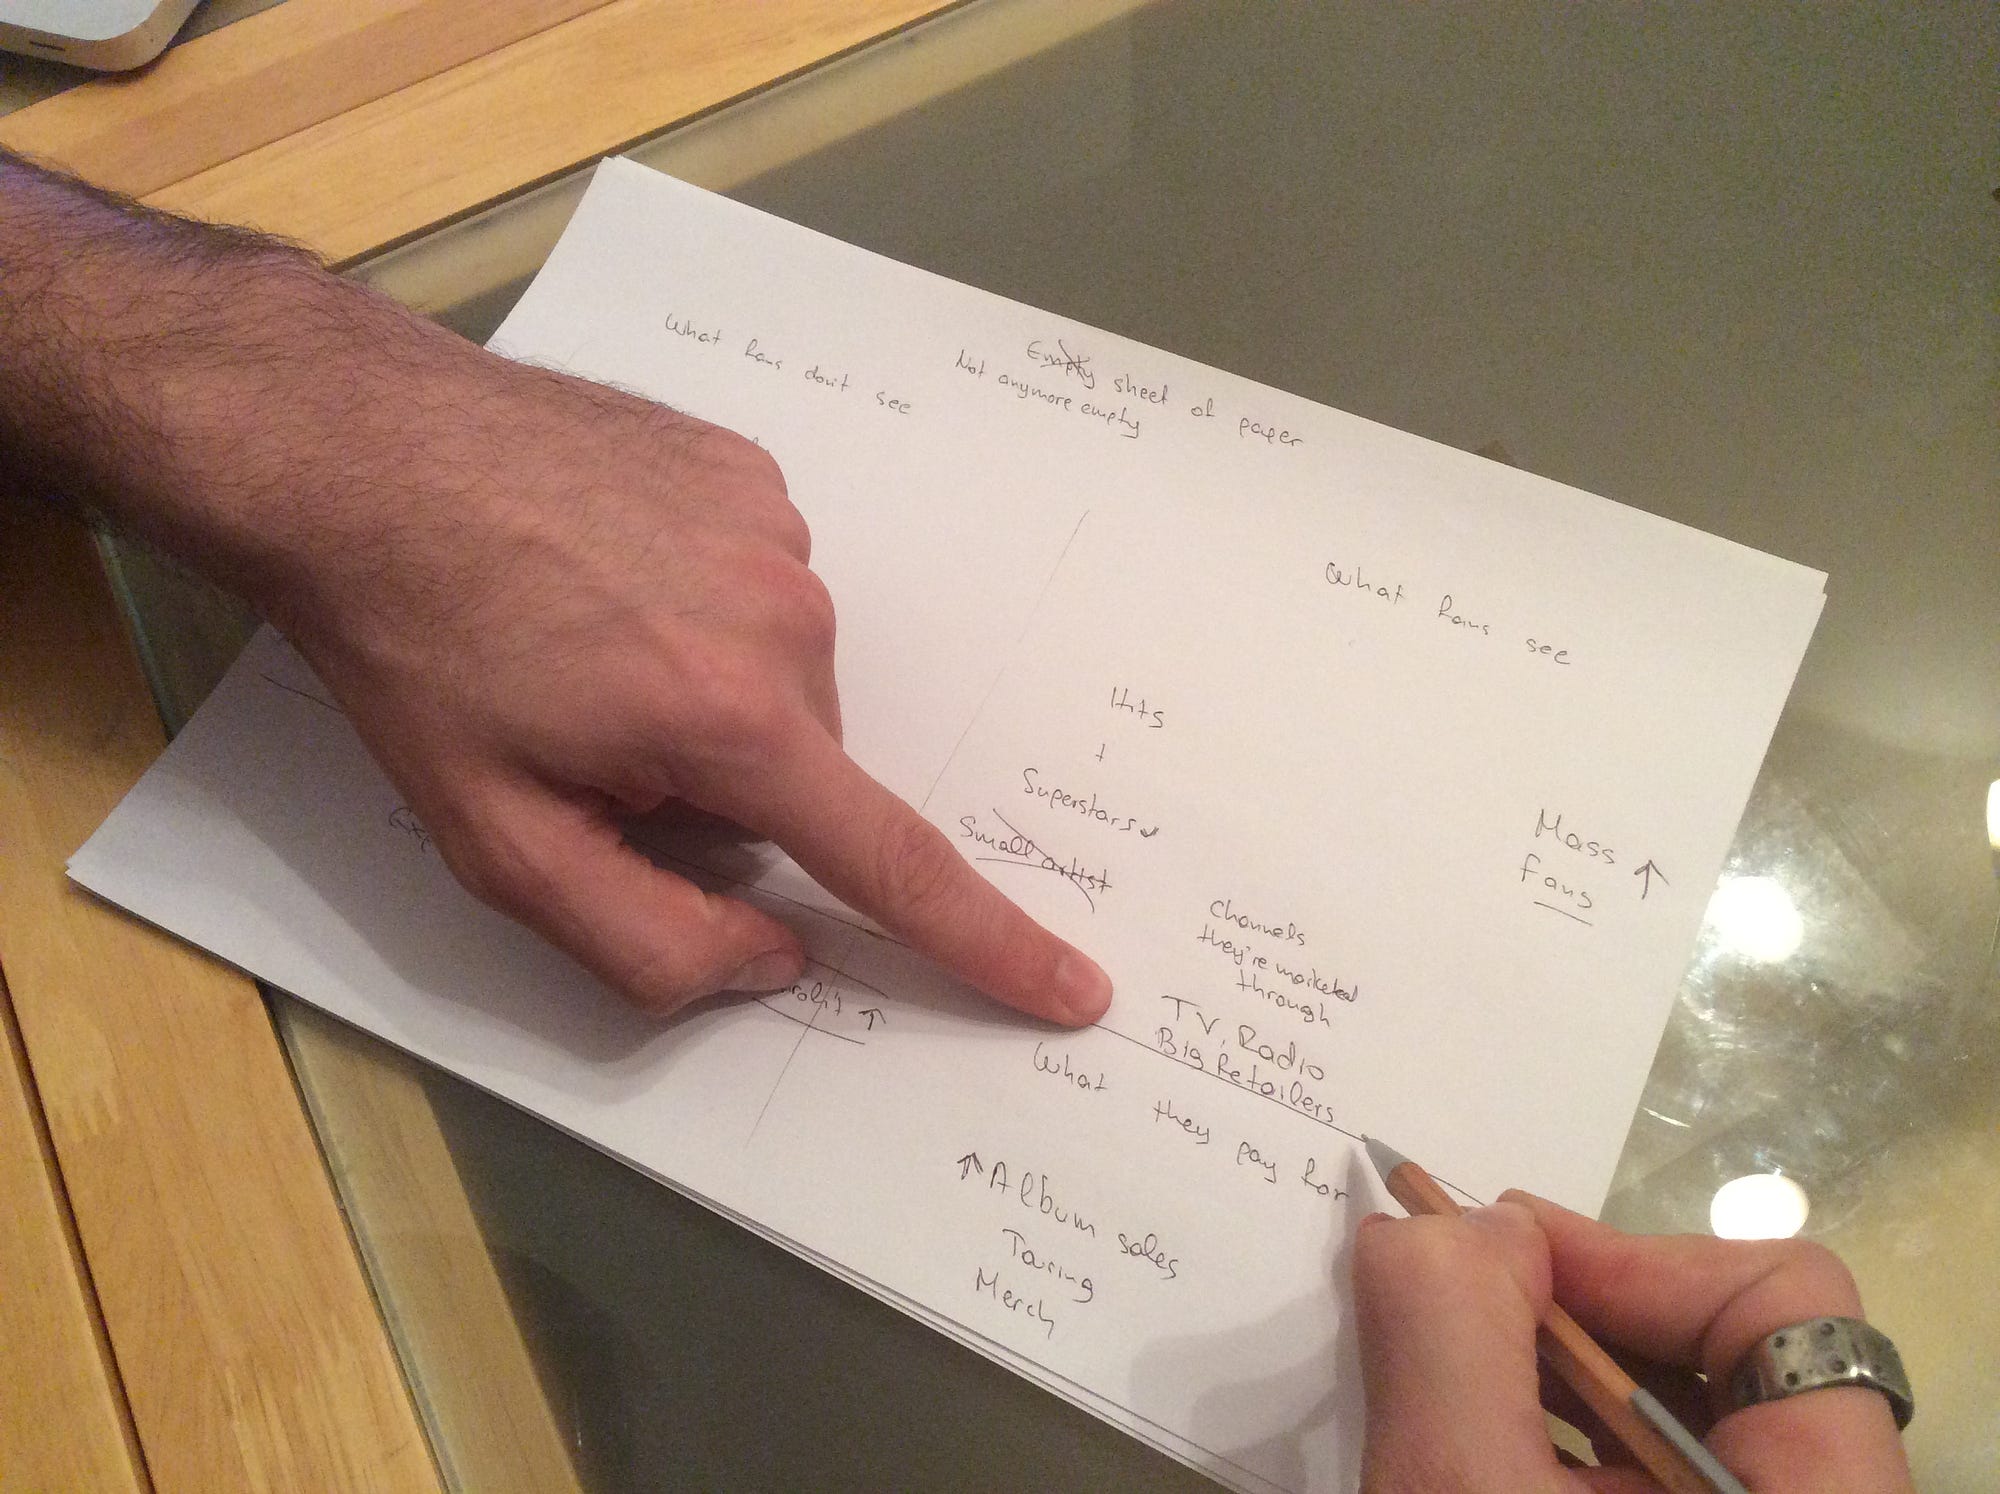 Empty sheet of paper
Not anymore empty
What fans don't see
What fans see
Hits
+
Superstars
Small artist
Mass ↑
fans
Channels
they're marketed
through
TV, Radio
Big Retailers
What they pay for
↑ Album sales
Touring
Merch